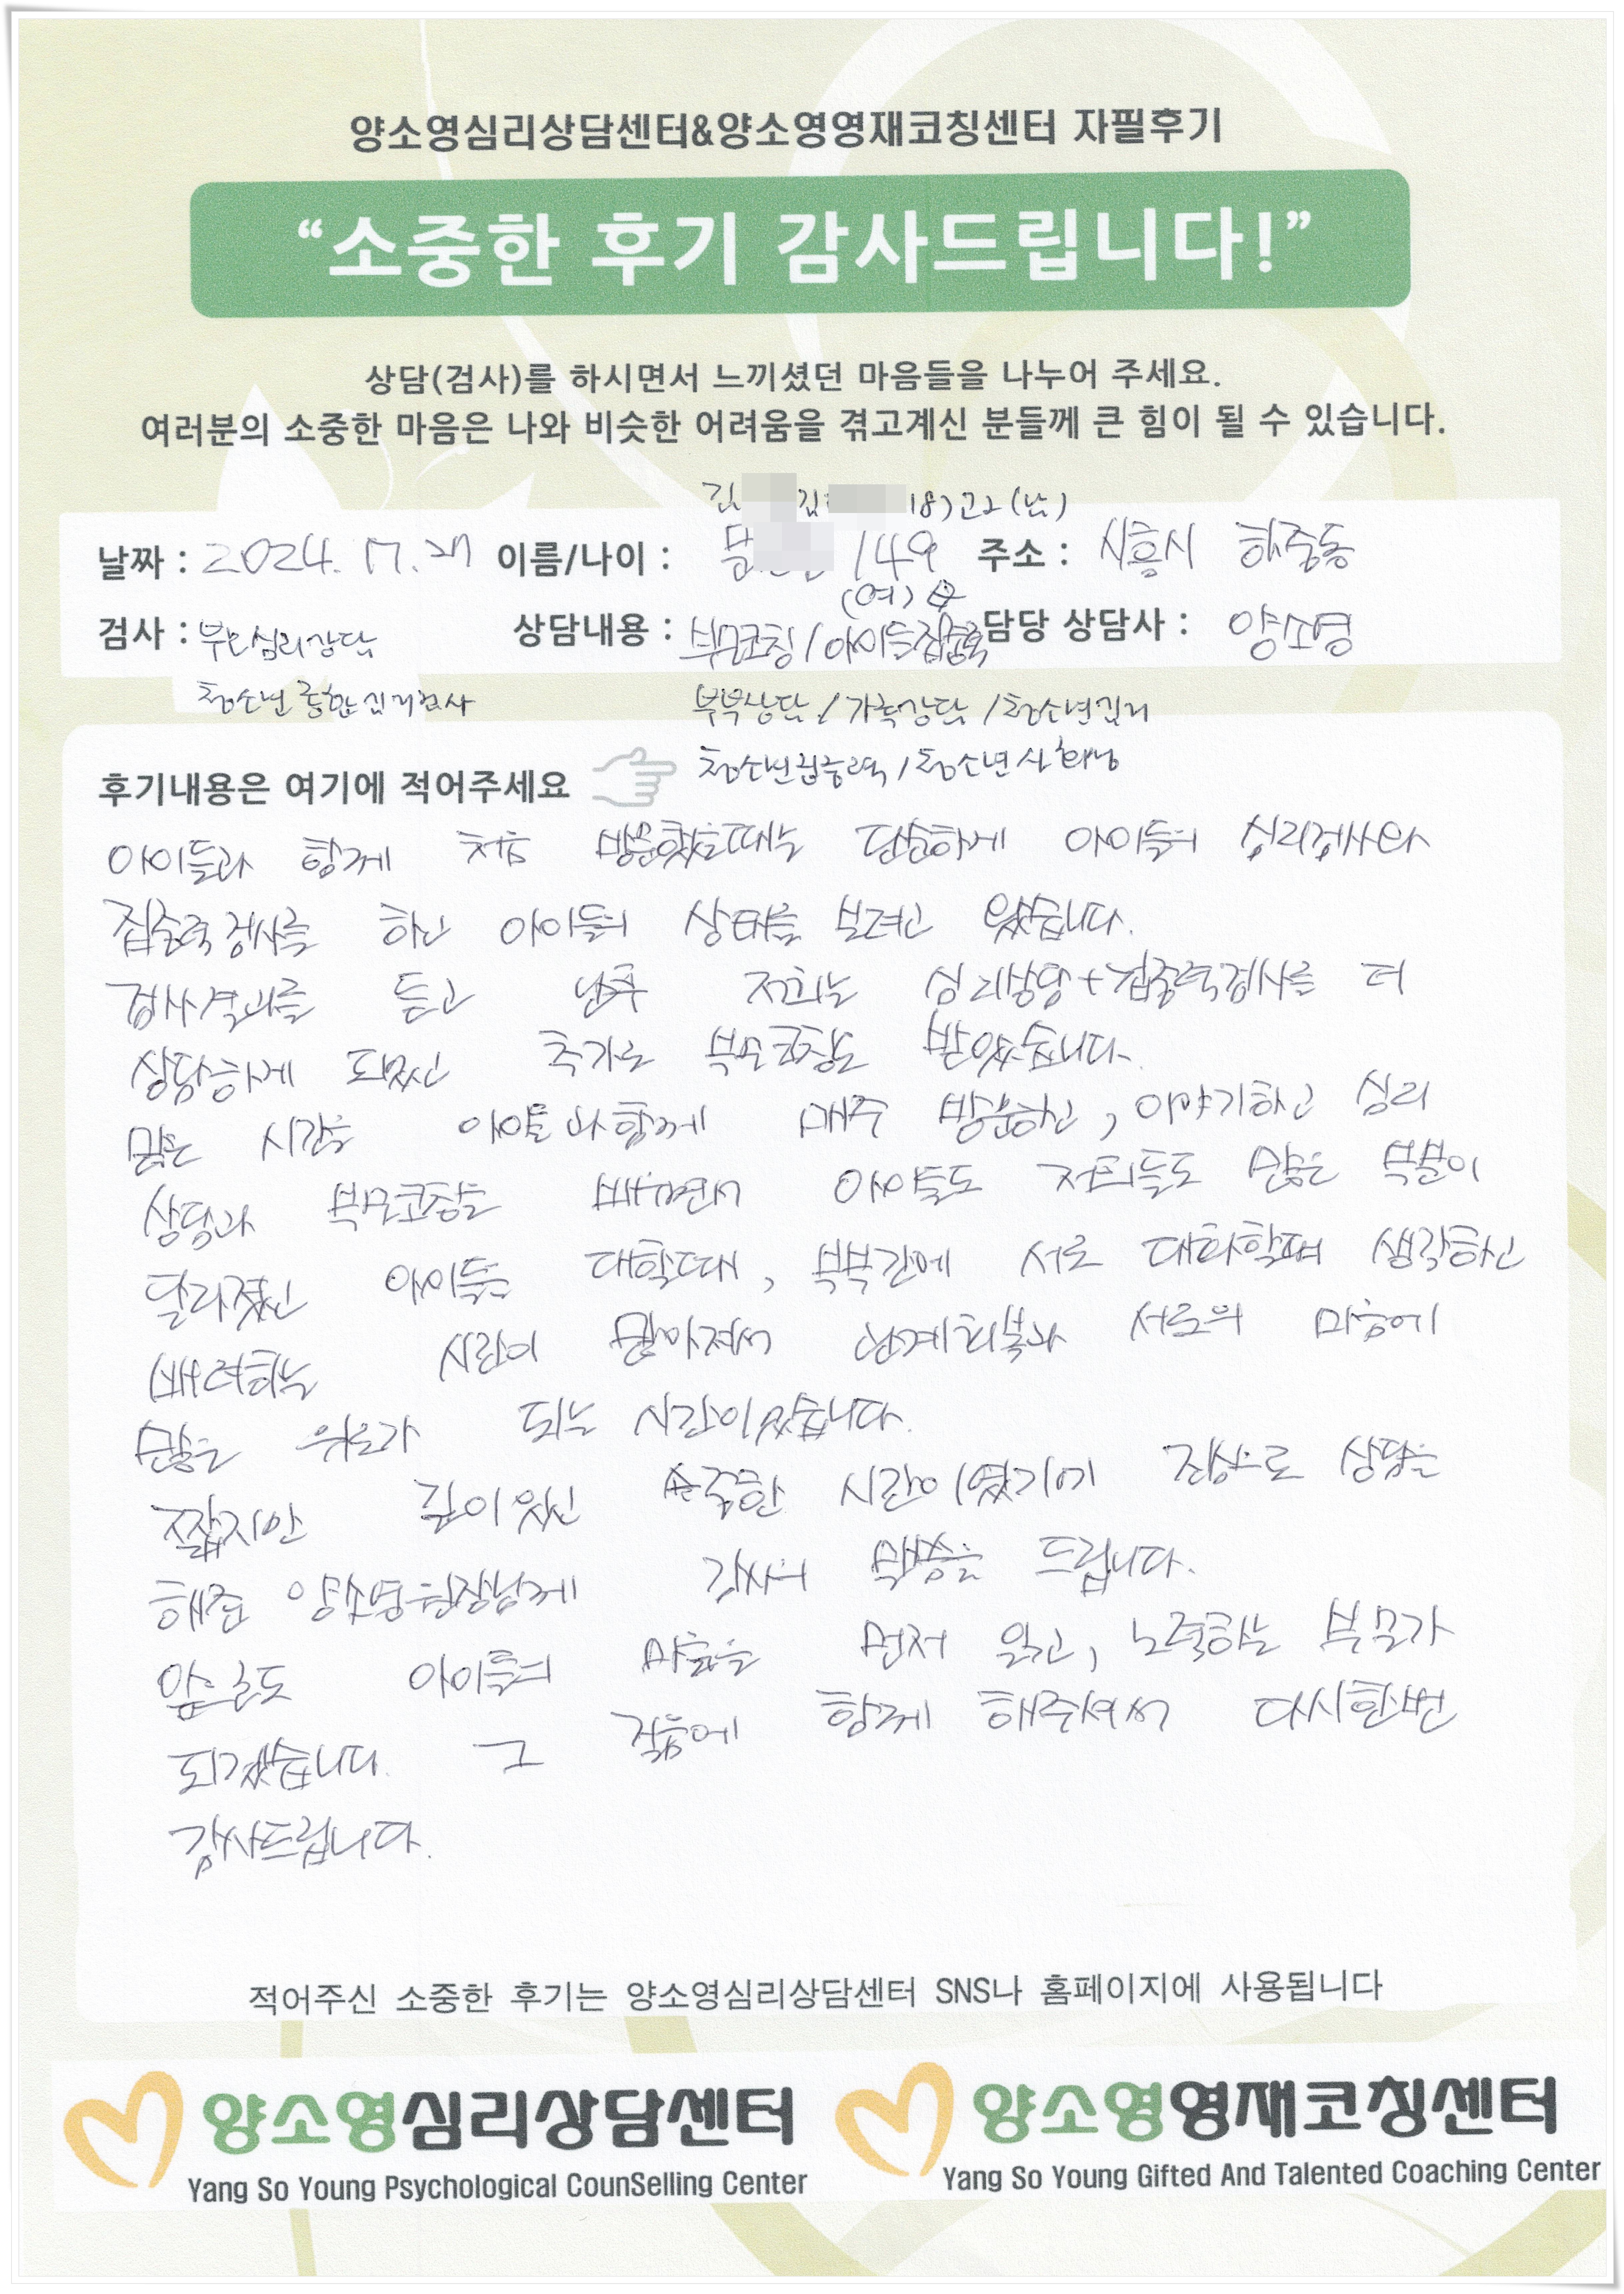 양소영심리상담센터&양소영영재코칭센터 자필후기
“소중한 후기 감사드립니다!”
상담(검사)를 하시면서 느끼셨던 마음들을 나누어 주세요.
여러분의 소중한 마음은 나와 비슷한 어려움을 겪고계신 분들께 큰 힘이 될 수 있습니다.
김 김 18) 고2 (남)
날짜 : 2024. 이름/나이 : 문 /49 주소 : 시흥시 하중동
(여) 母
검사 : 부모심리상담 상담내용 : 부모코칭/아이들집중력 담당 상담사 : 양소영
청소년 종합심리검사 부부상담/가족상담/청소년심리
후기내용은 여기에 적어주세요 청소년집중력/청소년사회성
아이들과 함께 처음 방문했을때는 단순하게 아이들의 심리검사와
집중력검사를 하고 아이들의 상태를 보려고 왔습니다.
검사결과를 듣고 난후 저희는 심리상담+집중력검사를 더
상담하게 되었고 추가로 부모코칭도 받았습니다.
많은 시간을 아이들과함께 매주 방문하고, 이야기하고 심리
상담과 부모코칭을 배우면서 아이들도 저희들도 많은 부분이
달라졌고 아이들 대할때, 부부간에 서로 대화할때 생각하고
배려하는 시간이 많아져서 관계회복과 서로의 마음에
많은 위로가 되는 시간이었습니다.
짧지만 깊이있고 소중한 시간이였기에 진심으로 상담을
해준 양소영원장님께 감사의 말씀을 드립니다.
앞으로도 아이들의 마음을 먼저 읽고, 노력하는 부모가
되겠습니다. 그 걸음에 함께 해주셔서 다시한번
감사드립니다.
적어주신 소중한 후기는 양소영심리상담센터 SNS나 홈페이지에 사용됩니다
양소영심리상담센터 양소영영재코칭센터
Yang So Young Psychological CounSelling Center Yang So Young Gifted And Talented Coaching Center